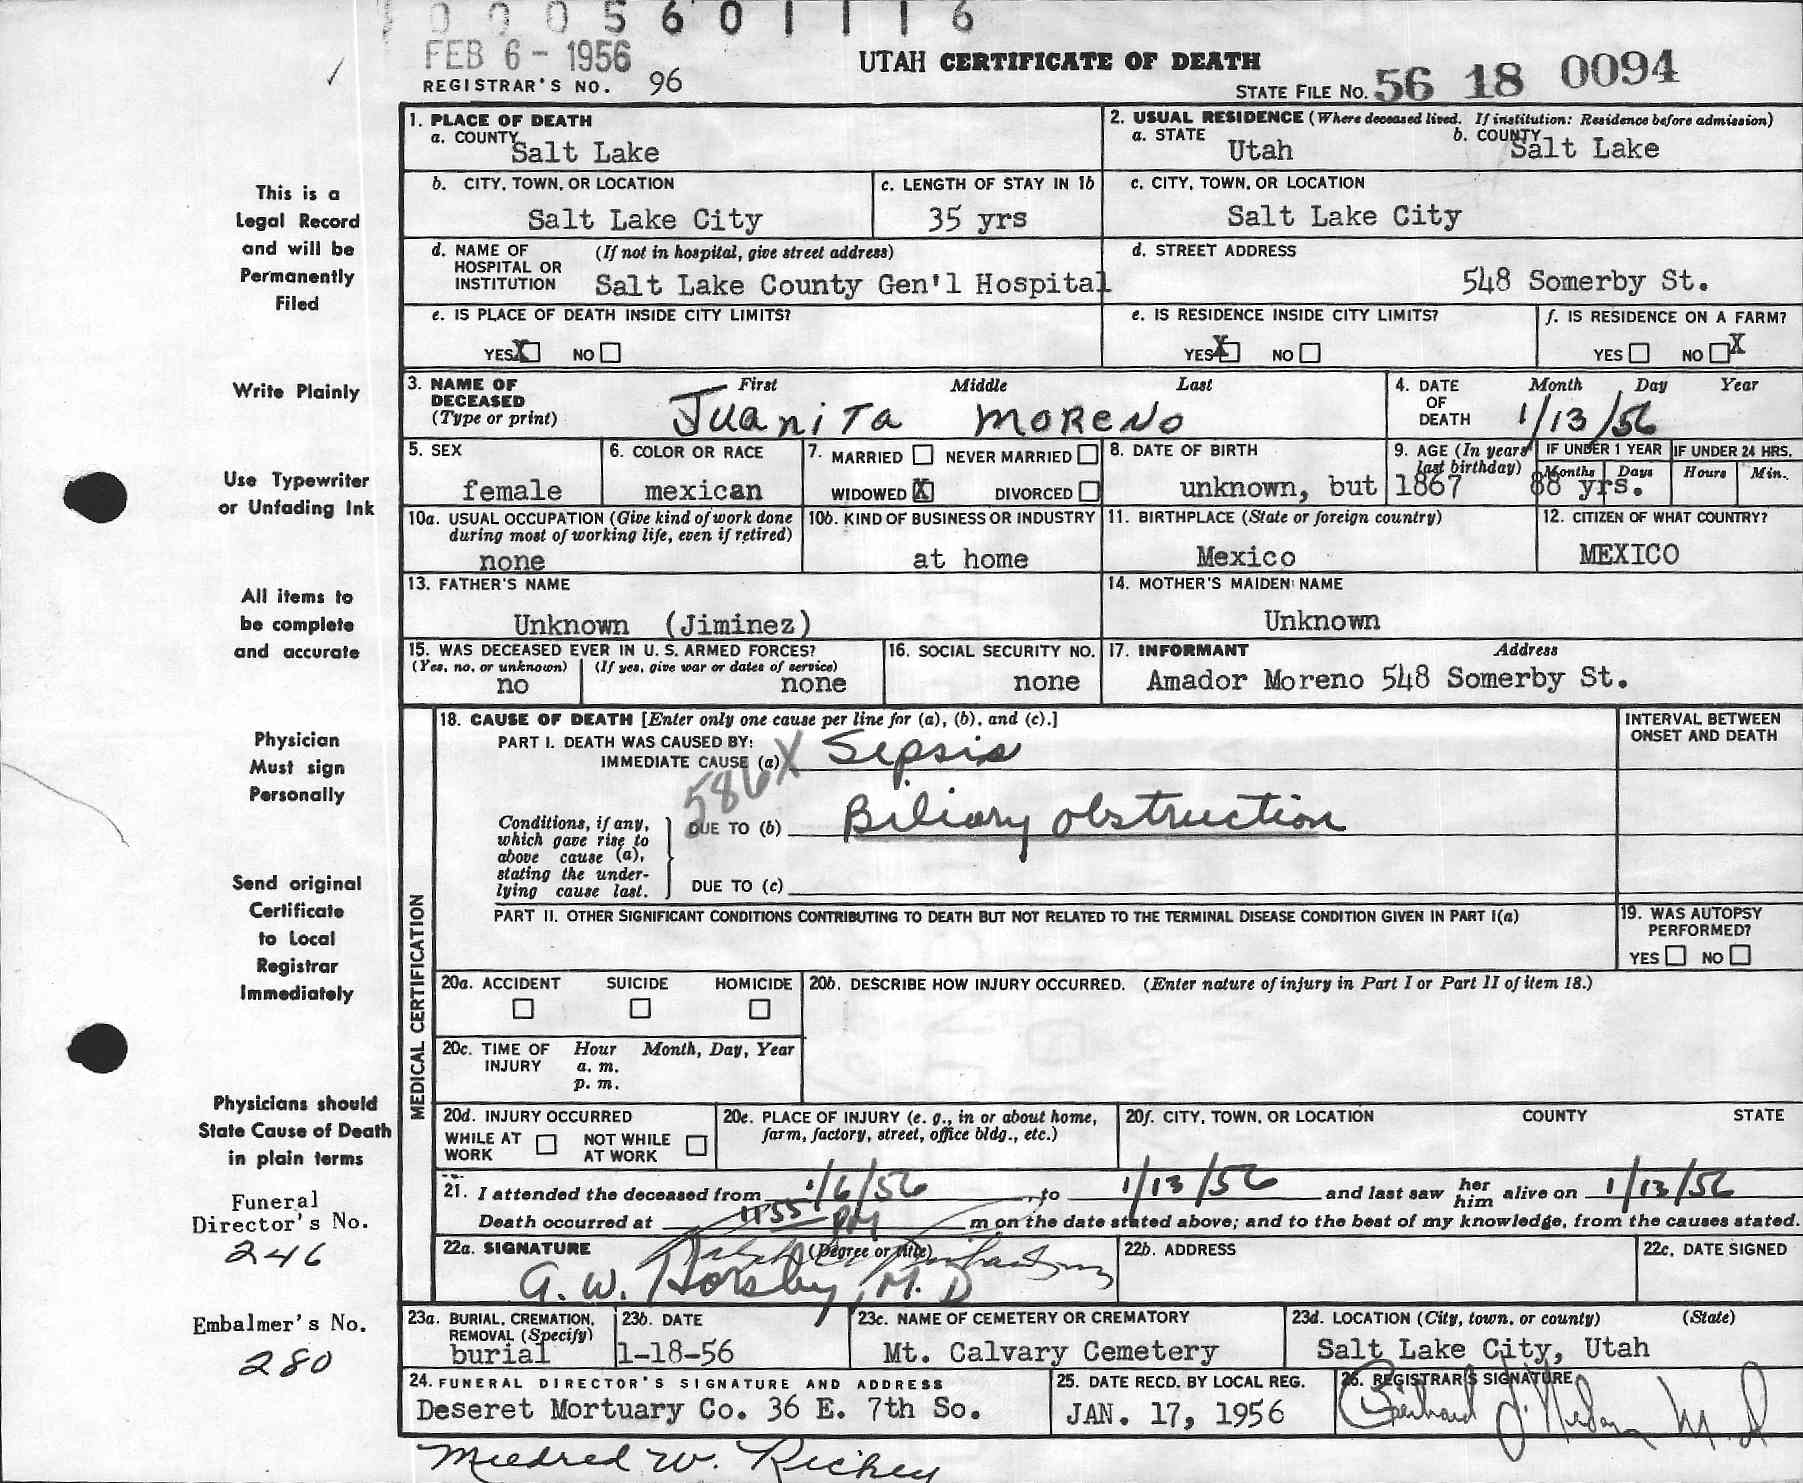 0005601116
FEB 6 - 1956
REGISTRAR'S NO. 96
UTAH CERTIFICATE OF DEATH
STATE FILE No. 56 18 0094
This is a
Legal Record
and will be
Permanently
Filed
Write Plainly
Use Typewriter
or Unfading Ink
All items to
be complete
and accurate
Physician
Must sign
Personally
Send original
Certificate
to Local
Registrar
Immediately
Physicians should
State Cause of Death
in plain terms
Funeral
Director's No.
246
Embalmer's No.
280
1. PLACE OF DEATH
a. COUNTY
Salt Lake
2. USUAL RESIDENCE (Where deceased lived. If institution: Residence before admission)
a. STATE
Utah
b. COUNTY
Salt Lake
b. CITY, TOWN, OR LOCATION
Salt Lake City
c. LENGTH OF STAY IN 1b
35 yrs
c. CITY, TOWN, OR LOCATION
Salt Lake City
d. NAME OF HOSPITAL OR INSTITUTION
(If not in hospital, give street address)
Salt Lake County Gen'l Hospital
d. STREET ADDRESS
548 Somerby St.
e. IS PLACE OF DEATH INSIDE CITY LIMITS?
YES X NO
e. IS RESIDENCE INSIDE CITY LIMITS?
YES X NO
f. IS RESIDENCE ON A FARM?
YES NO X
3. NAME OF DECEASED
(Type or print)
First Middle Last
Juanita Moreno
4. DATE OF DEATH
Month Day Year
1/13/56
5. SEX
female
6. COLOR OR RACE
mexican
7. MARRIED NEVER MARRIED
WIDOWED X DIVORCED
8. DATE OF BIRTH
unknown, but 1867
9. AGE (In years last birthday)
88 yrs.
IF UNDER 1 YEAR
Months Days
IF UNDER 24 HRS.
Hours Min.
10a. USUAL OCCUPATION (Give kind of work done during most of working life, even if retired)
none
10b. KIND OF BUSINESS OR INDUSTRY
at home
11. BIRTHPLACE (State or foreign country)
Mexico
12. CITIZEN OF WHAT COUNTRY?
MEXICO
13. FATHER'S NAME
Unknown (Jiminez)
14. MOTHER'S MAIDEN NAME
Unknown
15. WAS DECEASED EVER IN U. S. ARMED FORCES?
(Yes, no, or unknown)
no
(If yes, give war or dates of service)
none
16. SOCIAL SECURITY NO.
none
17. INFORMANT Address
Amador Moreno 548 Somerby St.
MEDICAL CERTIFICATION
18. CAUSE OF DEATH [Enter only one cause per line for (a), (b), and (c).]
INTERVAL BETWEEN ONSET AND DEATH
PART I. DEATH WAS CAUSED BY:
IMMEDIATE CAUSE (a) Sepsis
586X
Conditions, if any, which gave rise to above cause (a), stating the underlying cause last.
DUE TO (b) Biliary obstruction
DUE TO (c)
PART II. OTHER SIGNIFICANT CONDITIONS CONTRIBUTING TO DEATH BUT NOT RELATED TO THE TERMINAL DISEASE CONDITION GIVEN IN PART I(a)
19. WAS AUTOPSY PERFORMED?
YES NO
20a. ACCIDENT SUICIDE HOMICIDE
20b. DESCRIBE HOW INJURY OCCURRED. (Enter nature of injury in Part I or Part II of item 18.)
20c. TIME OF INJURY
Hour Month, Day, Year
a. m.
p. m.
20d. INJURY OCCURRED
WHILE AT WORK NOT WHILE AT WORK
20e. PLACE OF INJURY (e. g., in or about home, farm, factory, street, office bldg., etc.)
20f. CITY, TOWN, OR LOCATION COUNTY STATE
21. I attended the deceased from 1/6/56, to 1/13/56 and last saw her him alive on 1/13/56
Death occurred at 1155 PM m on the date stated above; and to the best of my knowledge, from the causes stated.
22a. SIGNATURE (Degree or title)
A. W. Horsby, M. D
22b. ADDRESS
22c. DATE SIGNED
23a. BURIAL, CREMATION, REMOVAL (Specify)
burial
23b. DATE
1-18-56
23c. NAME OF CEMETERY OR CREMATORY
Mt. Calvary Cemetery
23d. LOCATION (City, town, or county) (State)
Salt Lake City, Utah
24. FUNERAL DIRECTOR'S SIGNATURE AND ADDRESS
Deseret Mortuary Co. 36 E. 7th So.
Mildred W. Richey
25. DATE RECD. BY LOCAL REG.
JAN. 17, 1956
26. REGISTRAR'S SIGNATURE